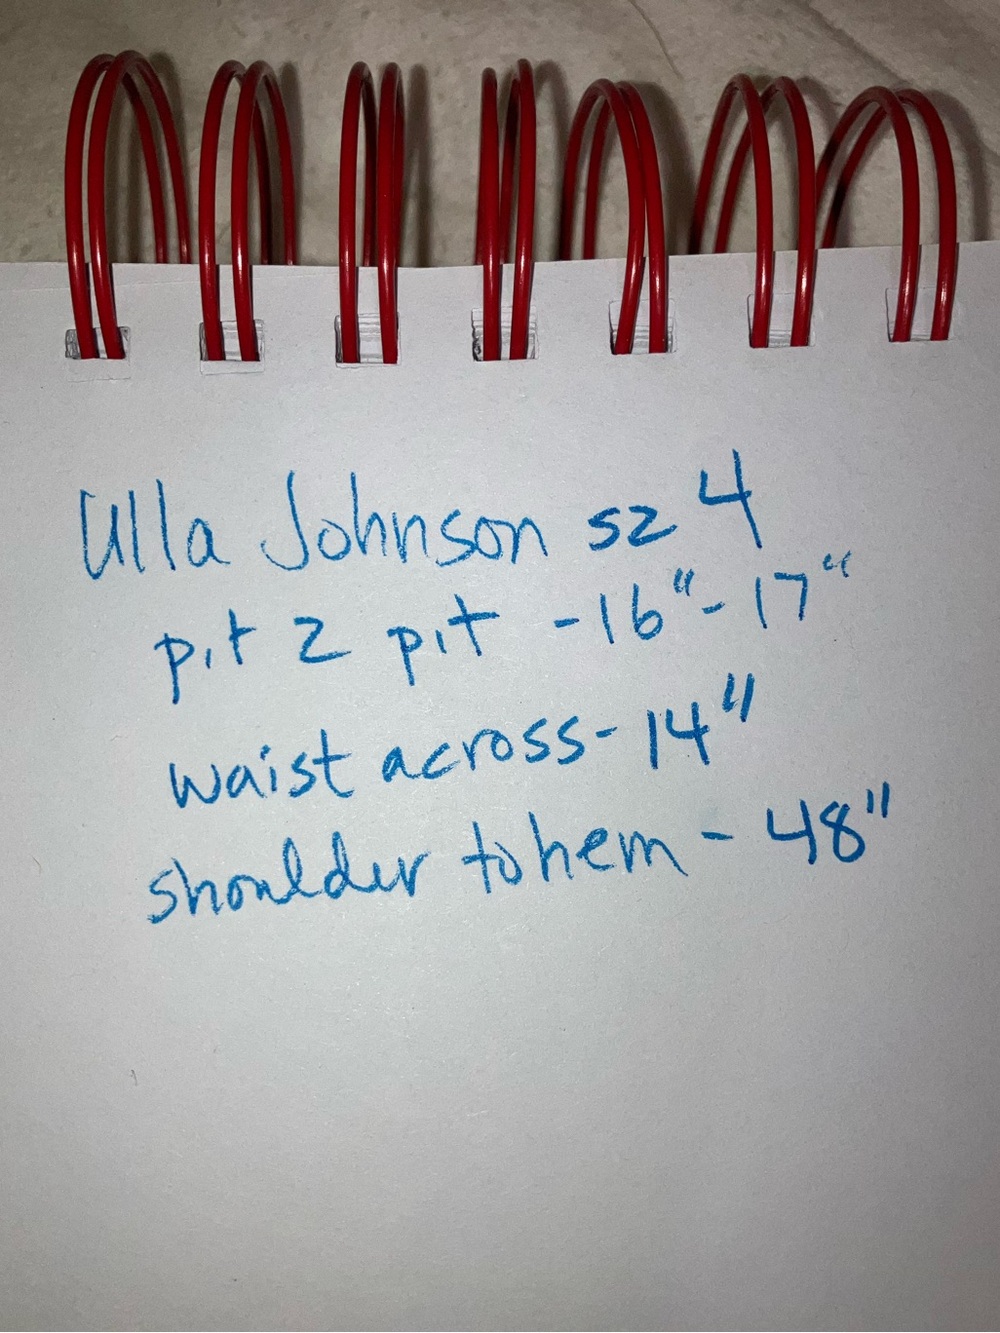 Ulla Johnson sz 4
pit 2 pit - 16" - 17"
waist across - 14"
shoulder to hem - 48"